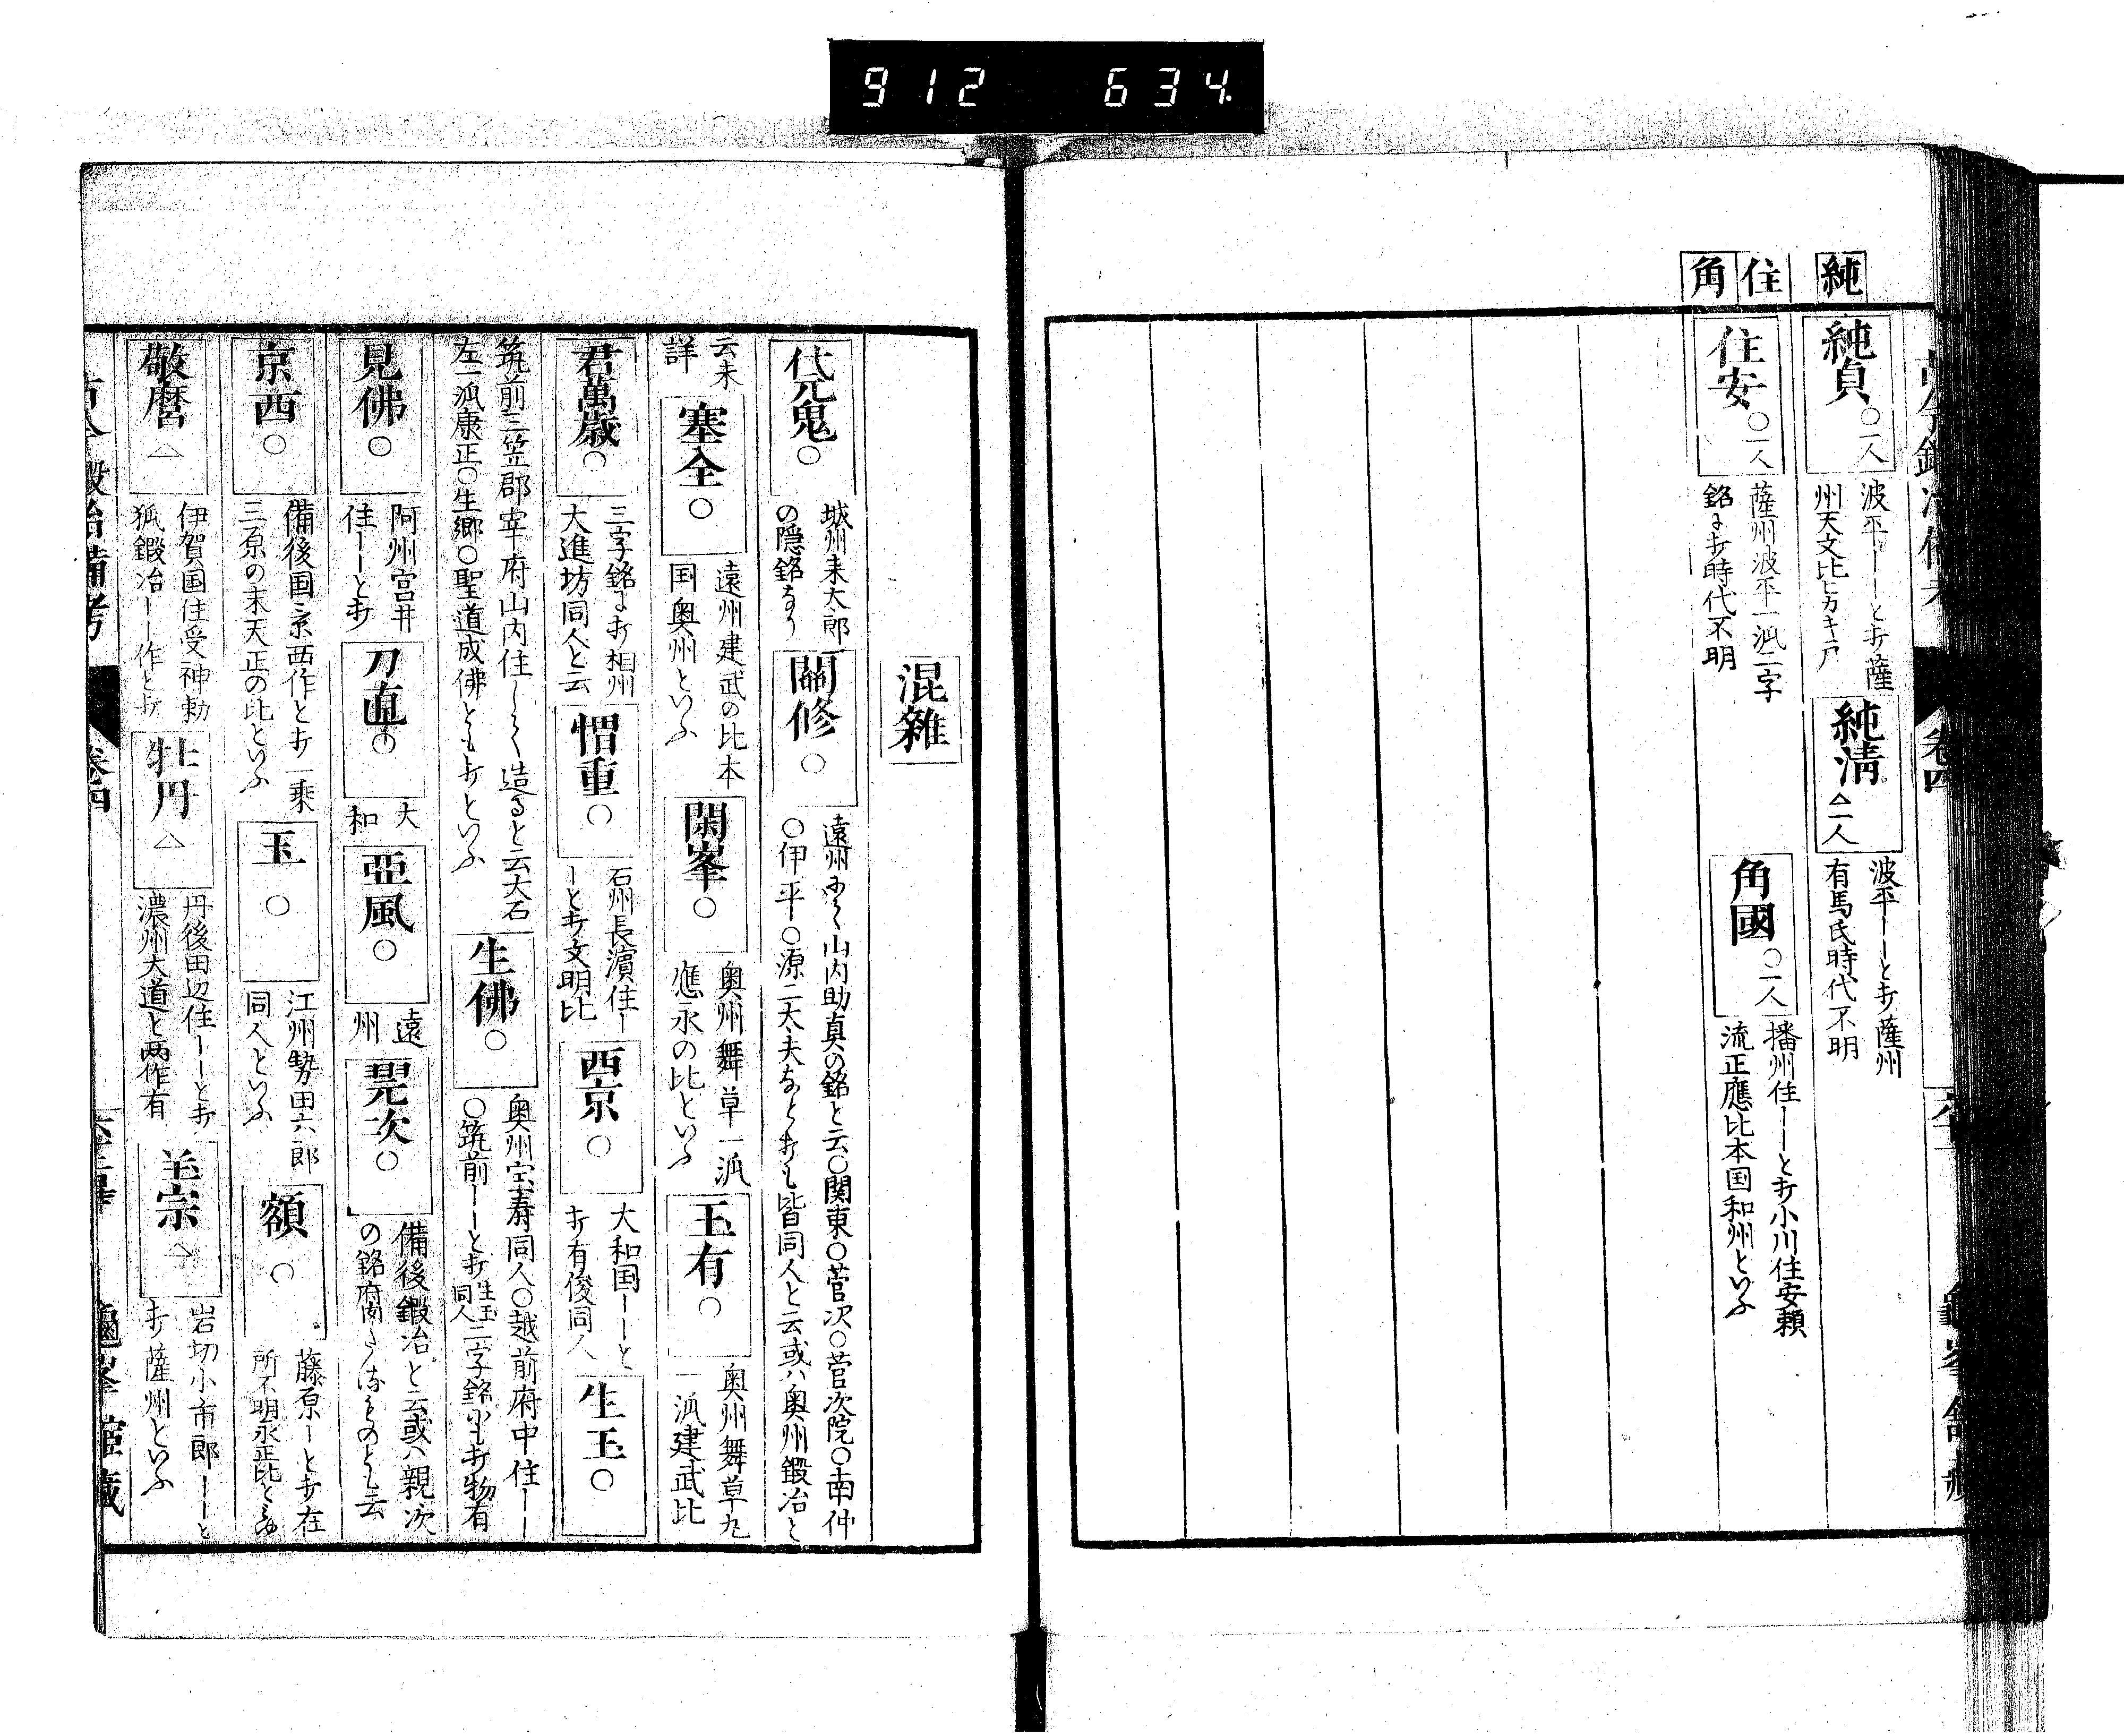 912 634
純
住
角
純貞 ○一人
波平ーーと打薩
州天文比ヒカキ戸
純清 △二人
波平ーーと打薩州
有馬氏時代不明
住安 ○一人
薩州波平一派二字
銘に打時代不明
角國 ○一人
播州住ーーと打小川住安頼
流正應比本国和州といふ
卷四
混雜
代元鬼 ○
城州来太郎
の隠銘なり
關修 ○
遠州にて山内助真の銘と云○関東○菅次○菅次院○南仲
○伊平○源二大夫などゝ打も皆同人と云或ハ奥州鍛冶と
云未
詳
塞全 ○
遠州建武の比本
国奥州といふ
閑峯 ○
奥州舞草一派
應永の比といふ
王有 ○
奥州舞草九
一派建武比
君萬歳 ○
三字銘に打相州
大進坊同人と云
㥜重 ○
石州長濱住ー
ーと打文明比
西京 ○
大和国ーーと
打有俊同人
生玉 ○
筑前三笠郡宰府山内住ーーく造ると云大石
左一派康正○生郷○聖道成佛とも打といふ
生佛 ○
奥州宝寿同人○越前府中住ーー
○筑前ーーと打生玉同人二字銘にも打物有
見佛 ○
阿州宮井
住ーーと打
刀直 ○
大
和
亞風 ○
遠
州
晃次 ○
備後鍛冶と云或ハ親次
京西 ○
備後国京西作と打一乗
三原の末天正の比といふ
玉 ○
江州勢田六郎
同人といふ
額 ○
藤原ーと打在
所不明永正比といふ
敬麿 △
伊賀国住受神勅
狐鍛冶ーー作と打
牡丹 △
丹後田辺住ーーと打
濃州大道と両作有
羊宗 △
岩切小市郎ーーと
打薩州といふ
古今鍛冶備考
卷四
龜峯館藏